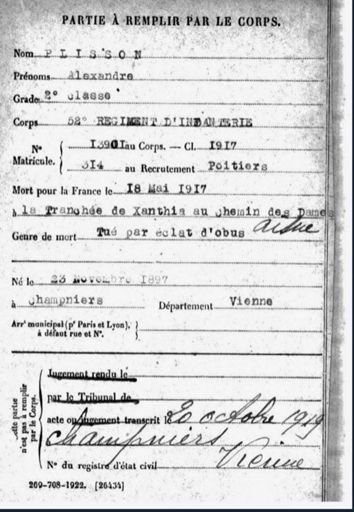 PARTIE À REMPLIR PAR LE CORPS.
Nom PLISSON
Prénoms Alexandre
Grade 2° classe
Corps 52° REGIMENT D'INFANTERIE
N° Matricule. { 13901 au Corps. — Cl. 1917
314 au Recrutement Poitiers
Mort pour la France le 18 Mai 1917
à la Tranchée de Xanthia au chemin des Dames
Genre de mort Tué par éclat d'obus Aisne
Né le 23 Novembre 1897
à Champniers Département Vienne
Arrt municipal (pr Paris et Lyon), à défaut rue et N°. }
Cette partie n'est pas à remplir par le Corps.
Jugement rendu le
par le Tribunal de
acte ou jugement transcrit le 20 octobre 1919
Champniers, Vienne
N° du registre d'état civil
269-708-1922. [26434]